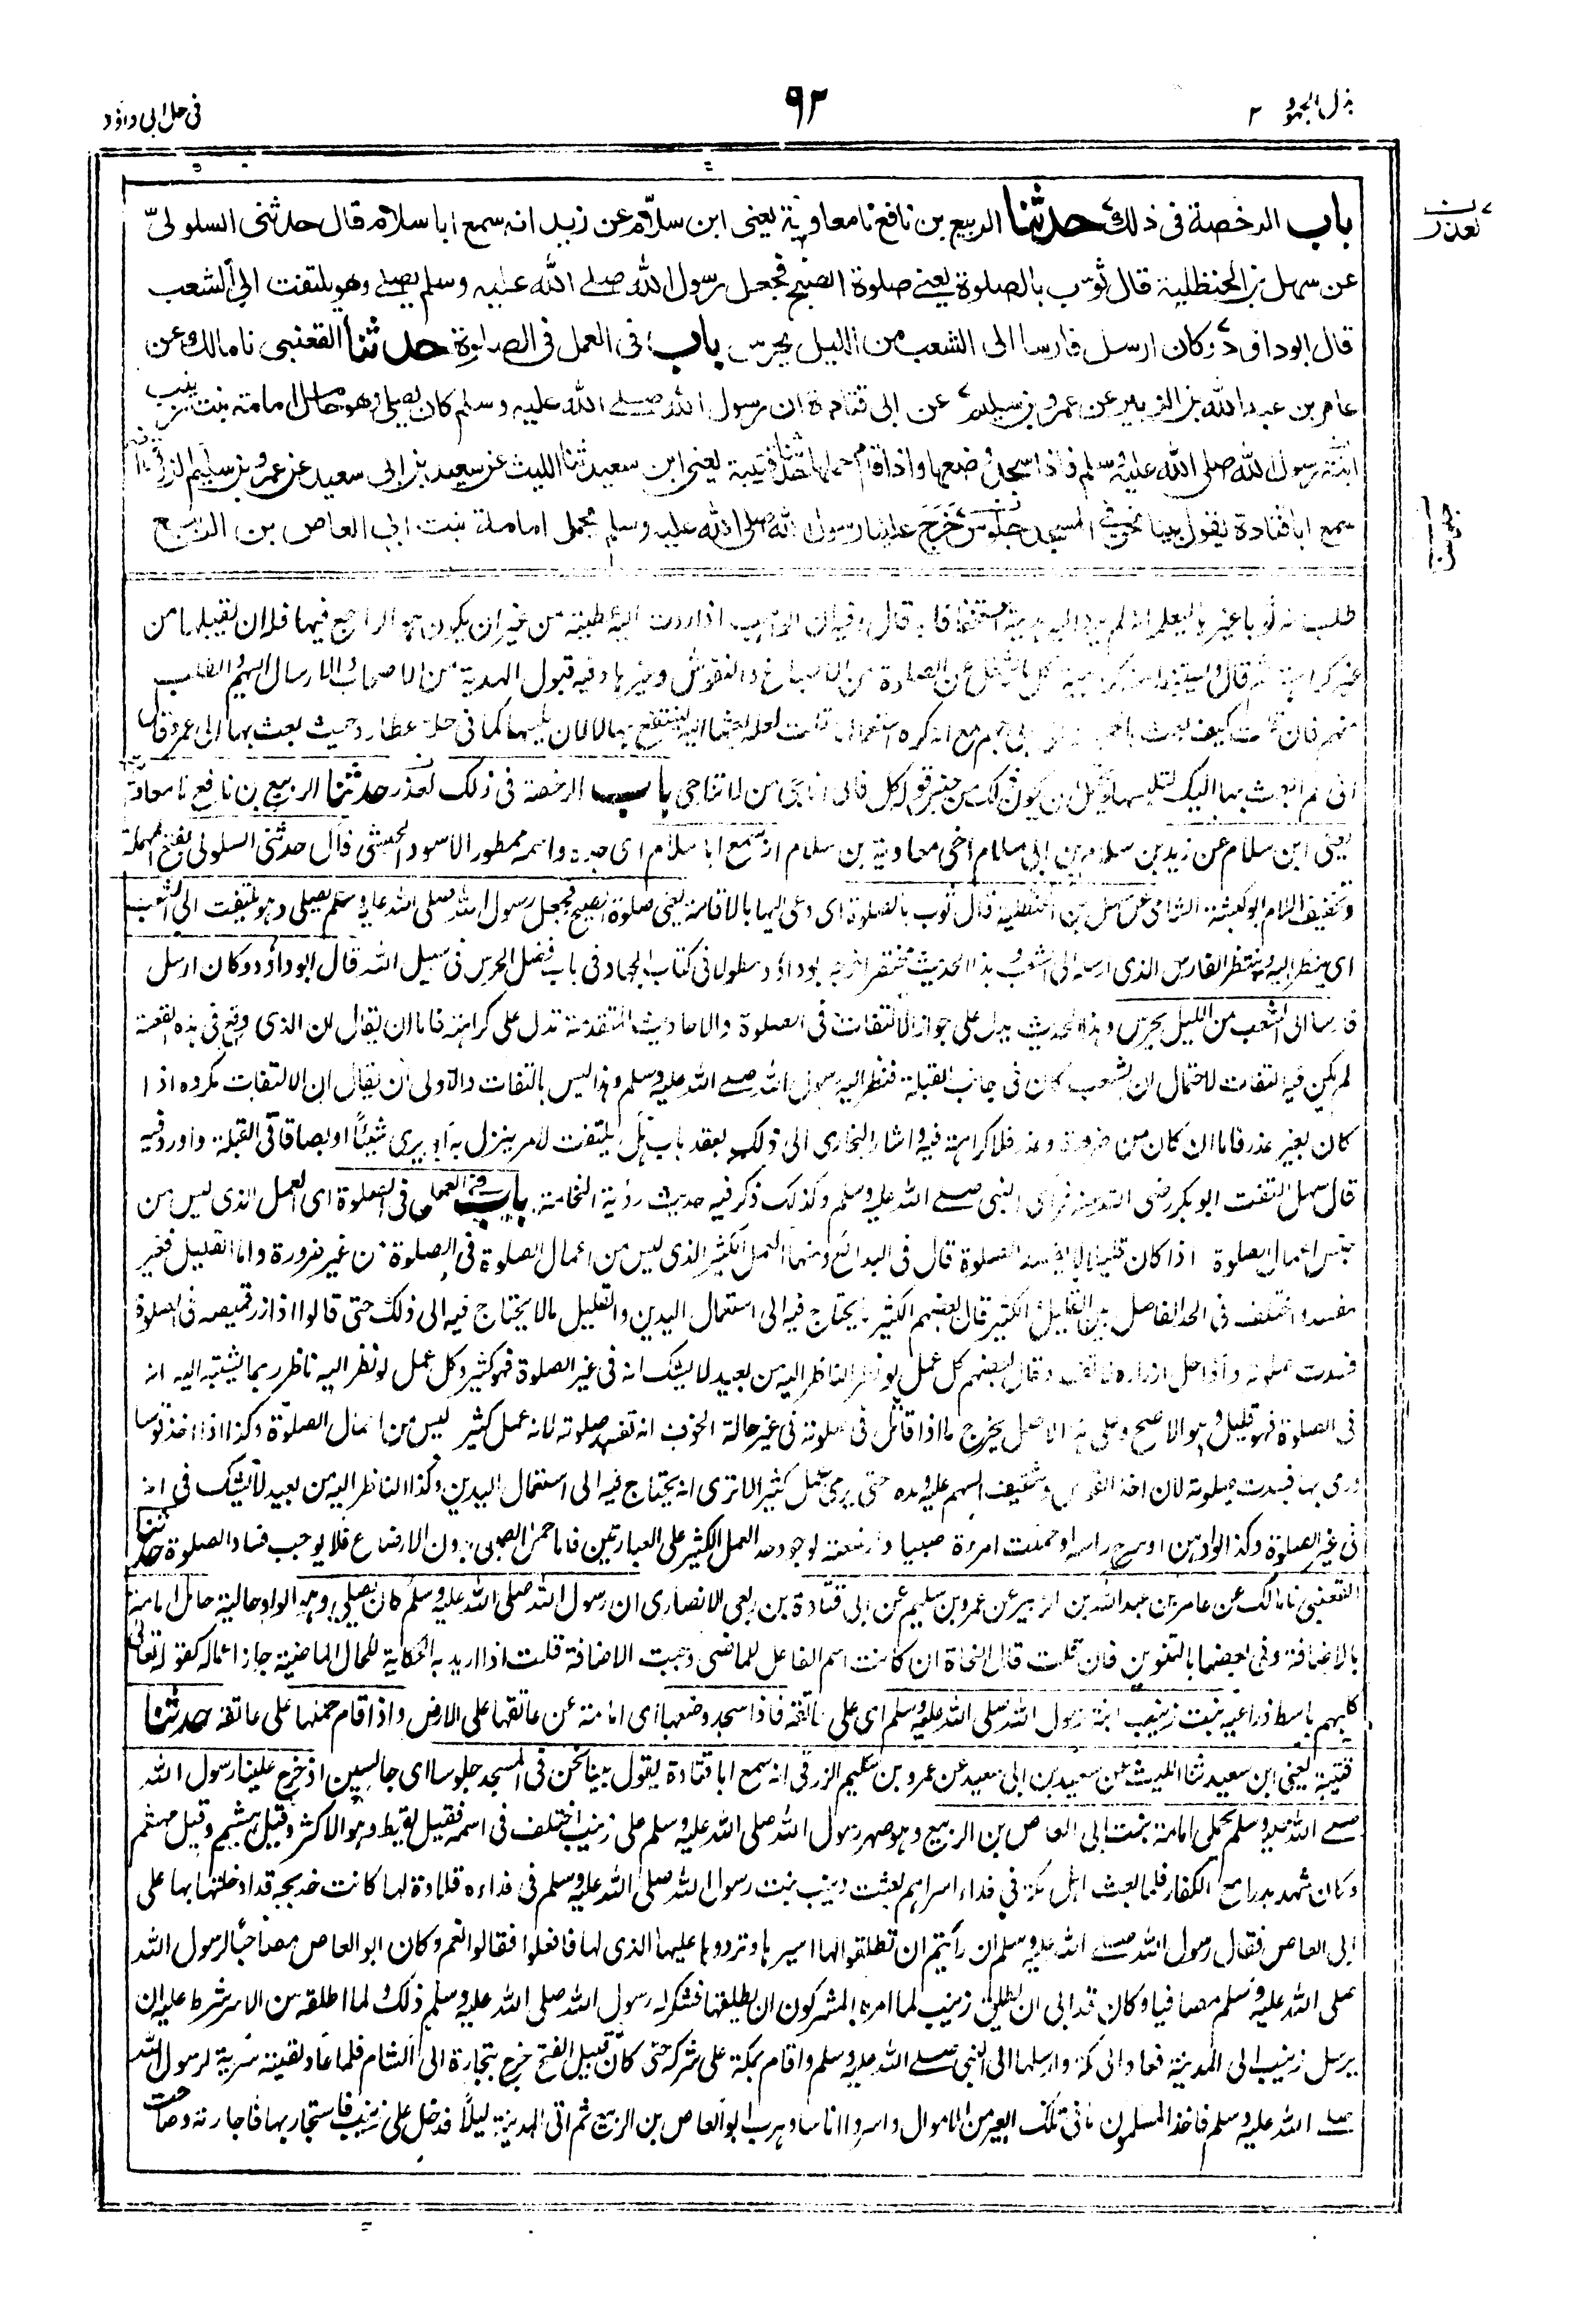 بذل المجهود ٢
٩٢
في حل ابي داؤد
باب الرخصة في ذلك حدثنا الربيع بن نافع نا معاوية يعني ابن سلام عن زيد انه سمع ابا سلام قال حدثني السلولي
عن سهل بن الحنظلية قال ثوب بالصلوة يعني صلوة الصبح فجعل رسول الله صلى الله عليه وسلم يصلي وهو يلتفت الى الشعب
قال ابوداؤد وكان ارسل فارسا الى الشعب من الليل يحرس باب في العمل في الصلوة حدثنا القعنبي نا مالك عن
عامر بن عبد الله بن الزبير عن عمرو بن سليم عن ابي قتادة ان رسول الله صلى الله عليه وسلم كان يصلي وهو حامل امامة بنت زينب
ابنة رسول الله صلى الله عليه وسلم فاذا سجد وضعها واذا قام حملها حدثنا قتيبة يعني ابن سعيد ثنا الليث عن سعيد بن ابي سعيد عن عمرو بن سليم الزرقي انه
سمع ابا قتادة يقول بينا نحن في المسجد جلوس خرج علينا رسول الله صلى الله عليه وسلم يحمل امامة بنت ابي العاص بن الربيع
لعذر
طلب منه ثوبا غيرها ليعلمه انه لم يرد اليه هديته استخفافا به قال وفيه ان الواهب اذا ردت اليه عطيته من غير ان يكون هو الراجع فيها فله ان يقبلها من
غير كراهة
فان قلت كيف بعث بها الى ابي جهم مع انه كره استعمالها قلت لعله بعثها اليه لينتفع بها لا لان يلبسها كما في حلة عطارد حيث بعث بها الى عمر وقال
اني لم ابعث بها اليك لتلبسها كل فاني اناجي من لا تناجي باب الرخصة في ذلك لعذر حدثنا الربيع بن نافع نا معاوية
يعني ابن سلام عن زيد بن سلام بن ابي سلام اخي معاوية بن سلام انه سمع ابا سلام اي جده واسمه ممطور الاسود الحبشي قال حدثني السلولي بفتح المهملة
وتخفيف اللام ابو كبشة الشامي عن سهل بن الحنظلية قال ثوب بالصلوة اي دعي اليها بالاقامة يعني صلوة الصبح فجعل رسول الله صلى الله عليه وسلم يصلي وهو يلتفت الى الشعب
اي ينظر اليه وينتظر الفارس الذي ارسله الى الشعب وهذا الحديث مختصر اخرجه ابوداؤد مطولا في كتاب الجهاد في باب فضل الحرس في سبيل الله قال ابوداؤد وكان ارسل
فارسا الى الشعب من الليل يحرس وهذا الحديث يدل على جواز الالتفات في الصلوة والاحاديث المتقدمة تدل على كراهته فاما ان يقال ان الذي وقع في هذه القصة
لم يكن فيه التفات لاحتمال ان الشعب كان في جانب القبلة فنظر اليه رسول الله صلى الله عليه وسلم وهذا ليس بالتفات والاولى ان يقال ان الالتفات مكروه اذا
كان بغير عذر فاما ان كان من ضرورة وعذر فلا كراهة فيه واشار البخاري الى ذلك بعقد باب هل يلتفت لامر ينزل به او يرى شيئا او بصاقا في القبلة واورد فيه
قال سهل التفت ابو بكر رضي الله عنه فرأى النبي صلى الله عليه وسلم وكذلك ذكر فيه حديث رؤية النخامة باب في العمل في الصلوة اي العمل الذي ليس من
جنس اعمال الصلوة اذا كان قليلا لا يفسد الصلوة قال في البدائع ومنها العمل الكثير الذي ليس من اعمال الصلوة في الصلوة من غير ضرورة واما القليل فغير
مفسد واختلف في الحد الفاصل بين القليل والكثير قال بعضهم الكثير ما يحتاج فيه الى استعمال اليدين والقليل مالا يحتاج فيه الى ذلك حتى قالوا اذا زر قميصه في الصلوة
فسدت صلوته واذا حل ازراره لا تفسد وقال بعضهم كل عمل لو نظر الناظر اليه من بعيد لا يشك انه في غير الصلوة فهو كثير وكل عمل لو نظر اليه ناظر ربما يشتبه اليه انه
في الصلوة فهو قليل وهو الاصح وعلى هذا الاصل يخرج ما اذا قاتل في صلوته في غير حالة الخوف انه تفسد صلوته لانه عمل كثير ليس من اعمال الصلوة وكذا اذا اخذ قوسا
ورمى بها فسدت صلوته لان اخذ القوس وتثقيف السهم عليه ومده حتى يرمي عمل كثير الا ترى انه يحتاج فيه الى استعمال اليدين وكذا الناظر اليه من بعيد لا يشك في انه
في غير الصلوة وكذا لو ادهن او سرح راسه او حملت امرأة صبيا وارضعته لوجود حد العمل الكثير على العبارتين فاما حمل الصبي بدون الارضاع فلا يوجب فساد الصلوة حدثنا
القعنبي نا مالك عن عامر بن عبد الله بن الزبير عن عمرو بن سليم عن ابي قتادة بن ربعي الانصاري ان رسول الله صلى الله عليه وسلم كان يصلي وهو الواو حالية حامل امامة
بالاضافة وفي بعضها بالتنوين فان قلت قال النحاة ان كانت اسم الفاعل للماضي وجبت الاضافة قلت اذا اريد به الحكاية للحال الماضية جاز اعماله كقوله تعالى
كلبهم باسط ذراعيه بنت زينب ابنة رسول الله صلى الله عليه وسلم اي على عاتقه فاذا سجد وضعها اي امامة عن عاتقها على الارض واذا قام حملها على عاتقه حدثنا
قتيبة يعني ابن سعيد ثنا الليث عن سعيد بن ابي سعيد عن عمرو بن سليم الزرقي انه سمع ابا قتادة يقول بينا نحن في المسجد جلوسا اي جالسين اذ خرج علينا رسول الله
صلى الله عليه وسلم يحمل امامة بنت ابي العاص بن الربيع وهو صهر رسول الله صلى الله عليه وسلم على زينب اختلف في اسمه فقيل لقيط وهو الاكثر وقيل هشيم وقيل مهشم
وكان شهد بدرا مع الكفار فلما بعث اهل مكة في فداء اسراهم بعثت زينب بنت رسول الله صلى الله عليه وسلم في فداءه قلادة لها كانت خديجة قد ادخلتها بها على
ابي العاص فقال رسول الله صلى الله عليه وسلم ان رأيتم ان تطلقوا لها اسيرها وتردوا عليها الذي لها فافعلوا فقالوا نعم وكان ابو العاص مصاحبا لرسول الله
صلى الله عليه وسلم مصافيا وكان قد ابى ان يطلق زينب لما امره المشركون ان يطلقها فشكر له رسول الله صلى الله عليه وسلم ذلك ولما اطلقه من الاسر شرط عليه ان
يرسل زينب الى المدينة فعاد الى مكة وارسلها الى النبي صلى الله عليه وسلم واقام بمكة على شركه حتى كان قبيل الفتح خرج بتجارة الى الشام فلما عاد لقيته سرية لرسول الله
صلى الله عليه وسلم فاخذ المسلمون ما في تلك العير من الاموال واسروا اناسا وهرب ابو العاص بن الربيع ثم اتى المدينة ليلا فدخل على زينب فاستجار بها فاجارته وصاحت